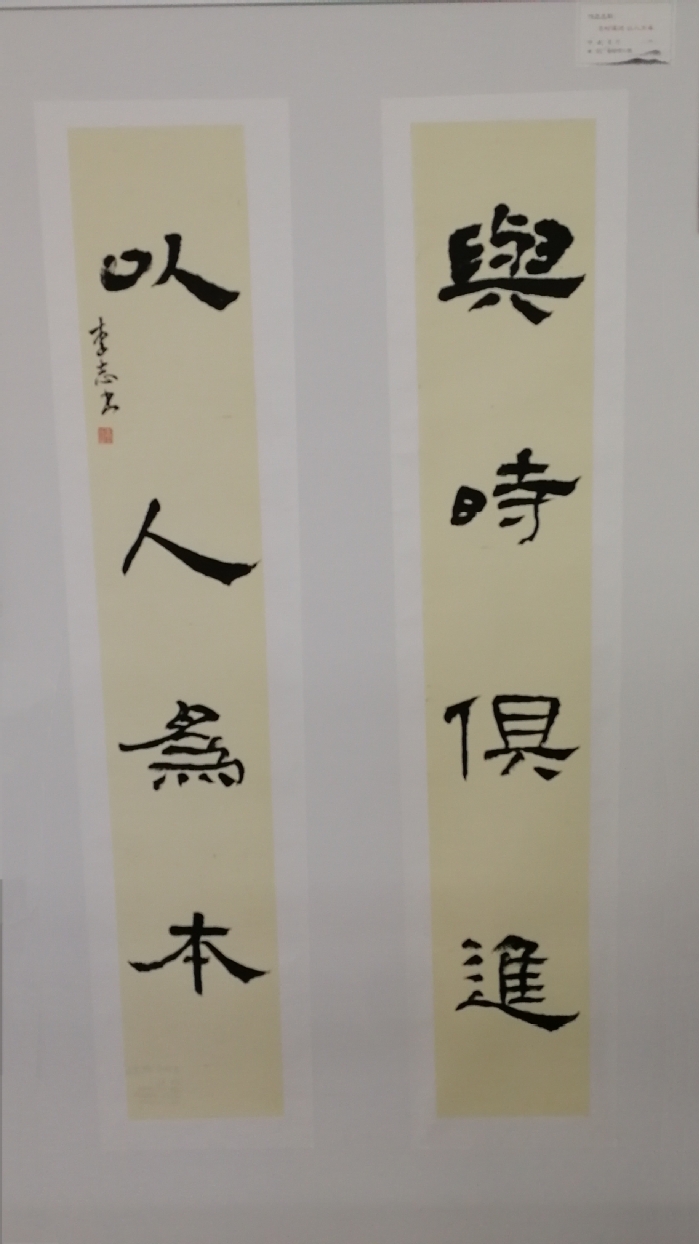 與時俱進
以人為本
李志书